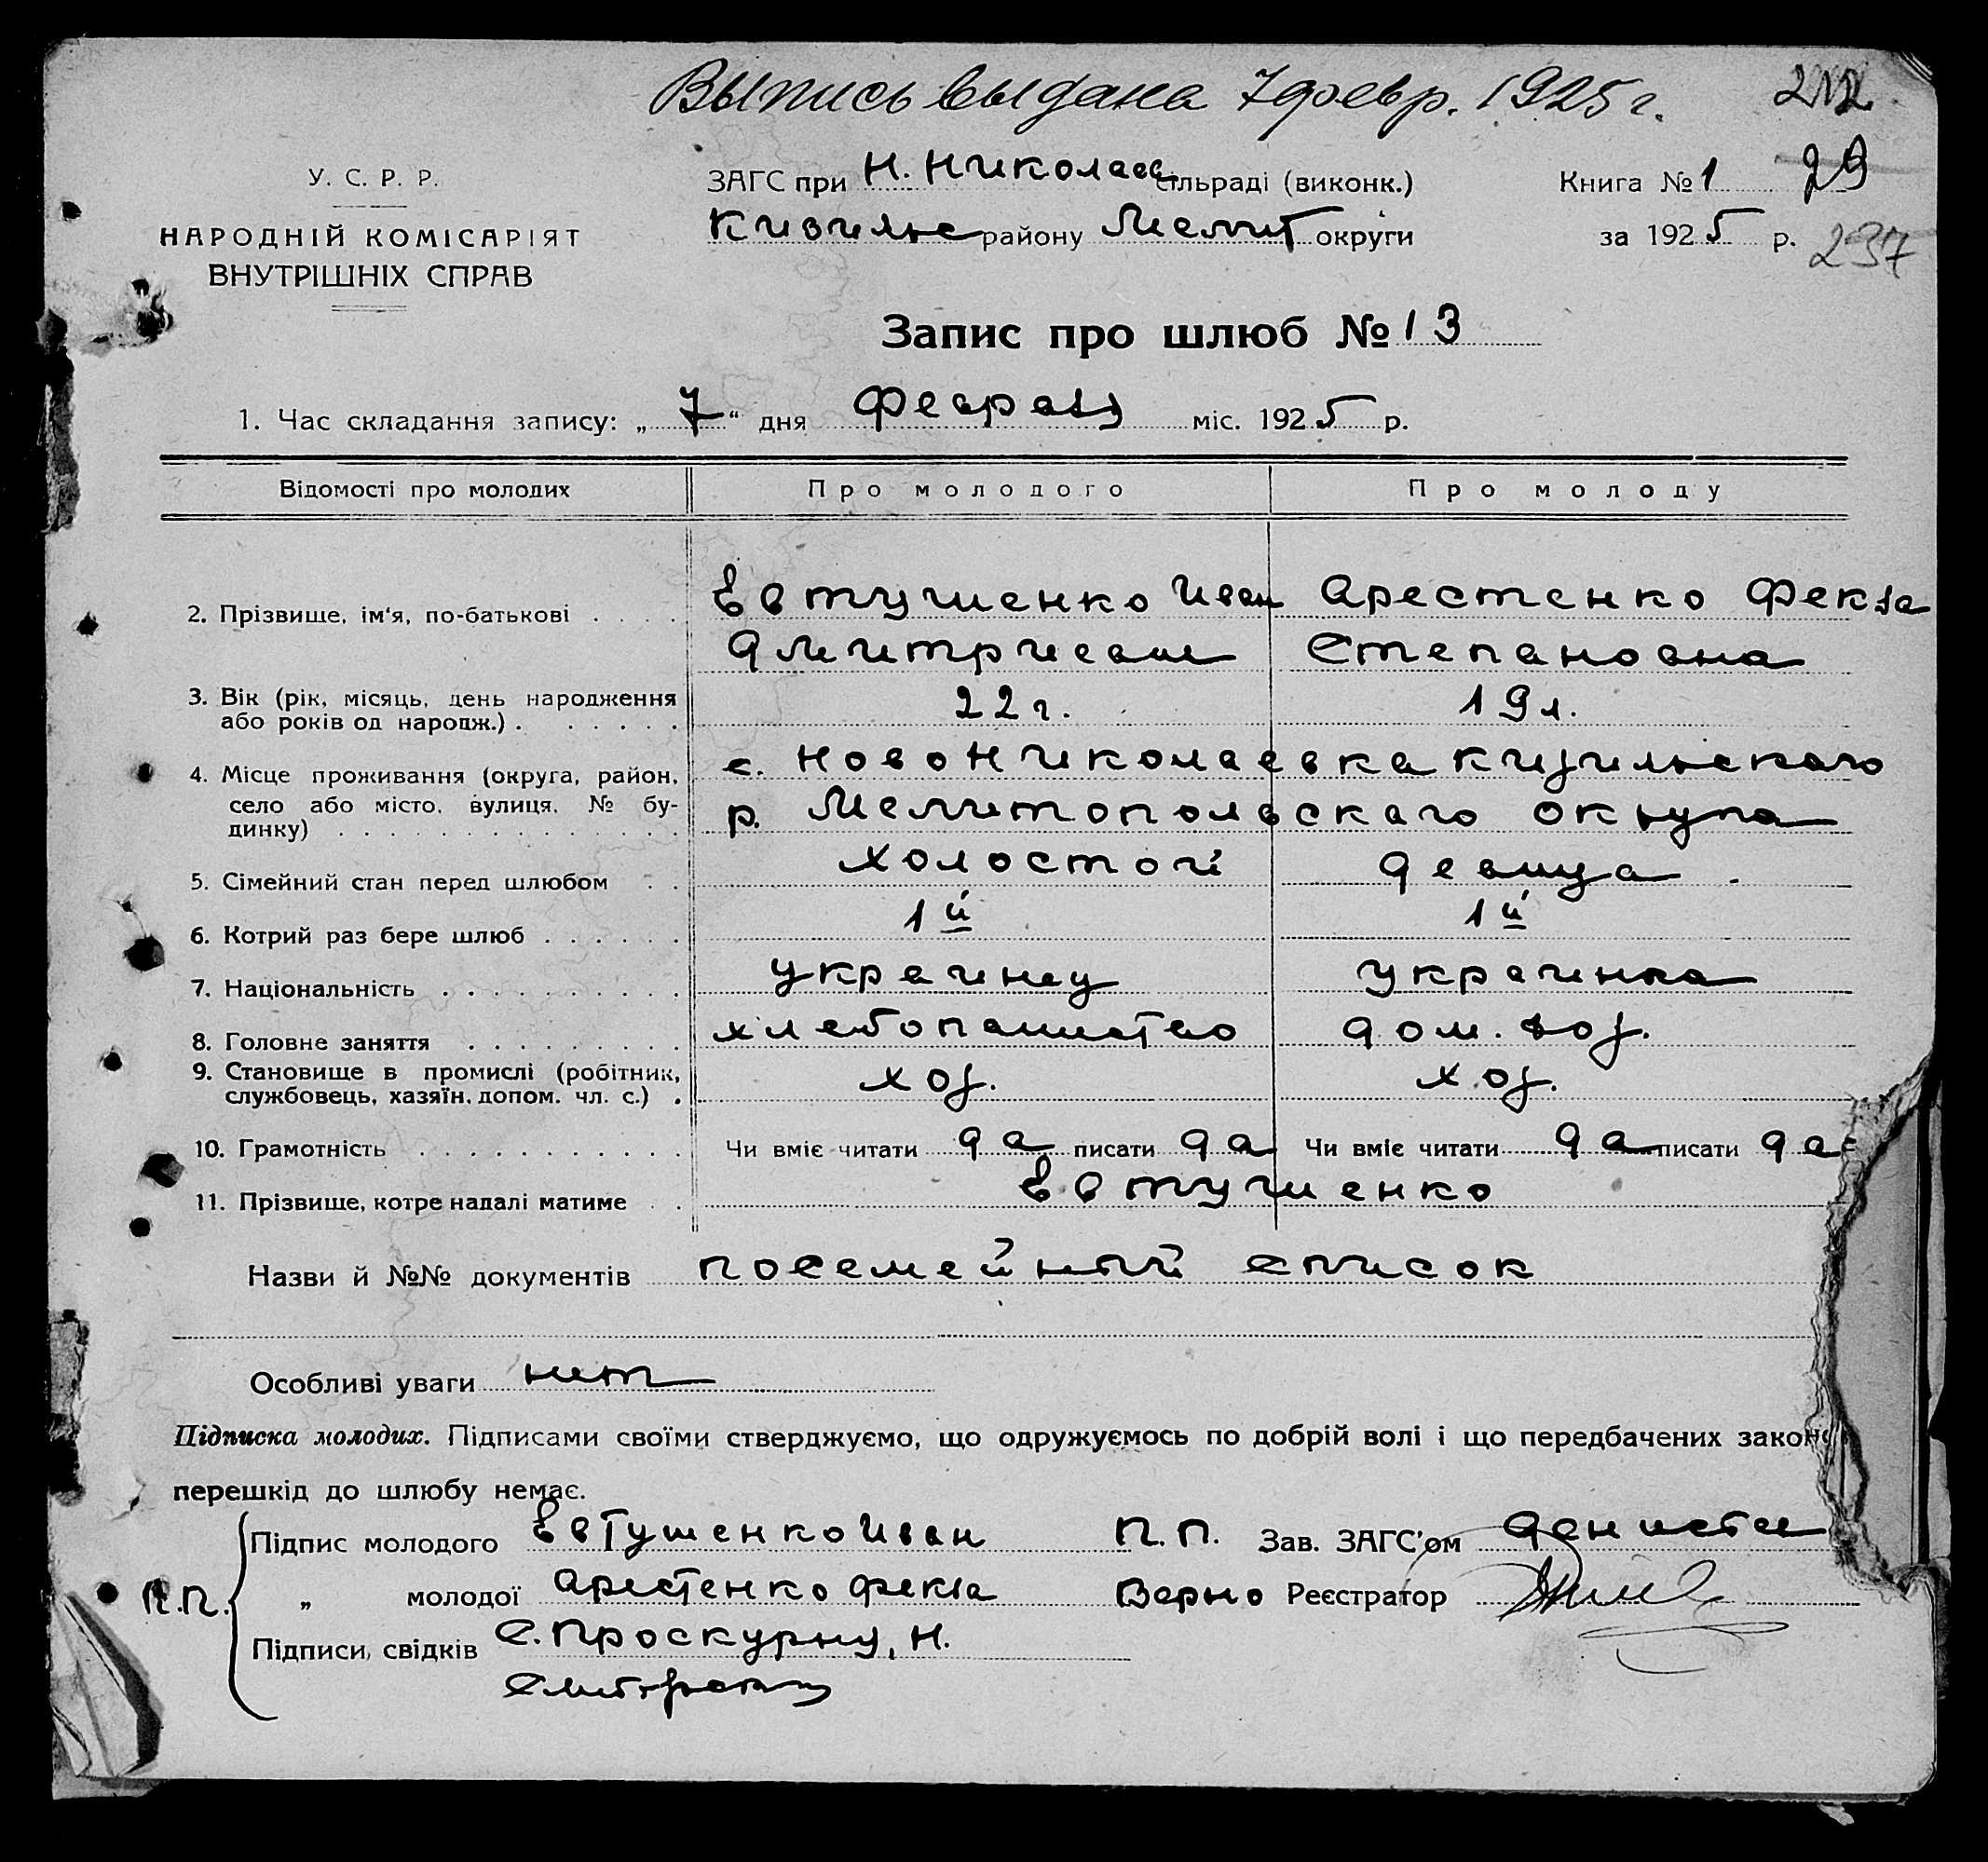 Выпись выдана 7 февр. 1925 г. 212
У. С. Р. Р.
ЗАГС при Н. Николаев сільраді (виконк.) Книга № 1 29
НАРОДНІЙ КОМІСАРІЯТ
Кизильс району Мелит округи за 1925 р. 237
ВНУТРІШНІХ СПРАВ
Запис про шлюб № 13
1. Час складання запису: „ 7 “ дня Февраля міс. 1925 р.
Відомості про молодих Про молодого Про молоду
2. Прізвище, ім'я, по-батькові . . . . Евтушенко Иван Арестенко Фекла
Дмитриевич Степановна
3. Вік (рік, місяць, день народження
або років од народж.) . . . . . . 22 г. 19 л.
4. Місце проживання (округа, район, с. Новониколаевка Кизильскаго
село або місто, вулиця, № бу-
динку) . . . . . . . . . . . . . . р. Мелитопольскаго округа
5. Сімейний стан перед шлюбом . . холостой девица
6. Котрий раз бере шлюб . . . . . . 1й 1й
7. Національність . . . . . . . . . . украинец украинка
8. Головне заняття . . . . . . . . . хлебопашество дом. хоз.
9. Становище в промислі (робітник,
службовець, хазяїн, допом. чл. с.) . хоз. хоз.
10. Грамотність . . . . . . . . . . . Чи вміє читати да писати да Чи вміє читати да писати да
11. Прізвище, котре надалі матиме . . Евтушенко
Назви й №№ документів посемейный список
Особливі уваги нет
Підписка молодих. Підписами своїми стверджуємо, що одружуємось по добрій волі і що передбачених законо
перешкід до шлюбу немає.
Підпис молодого Евтушенко Иван П.П. Зав. ЗАГС'ом
П.П. „ молодої Арестенко Фекла Верно Реєстратор
Підписи свідків С. Проскурну, Н.